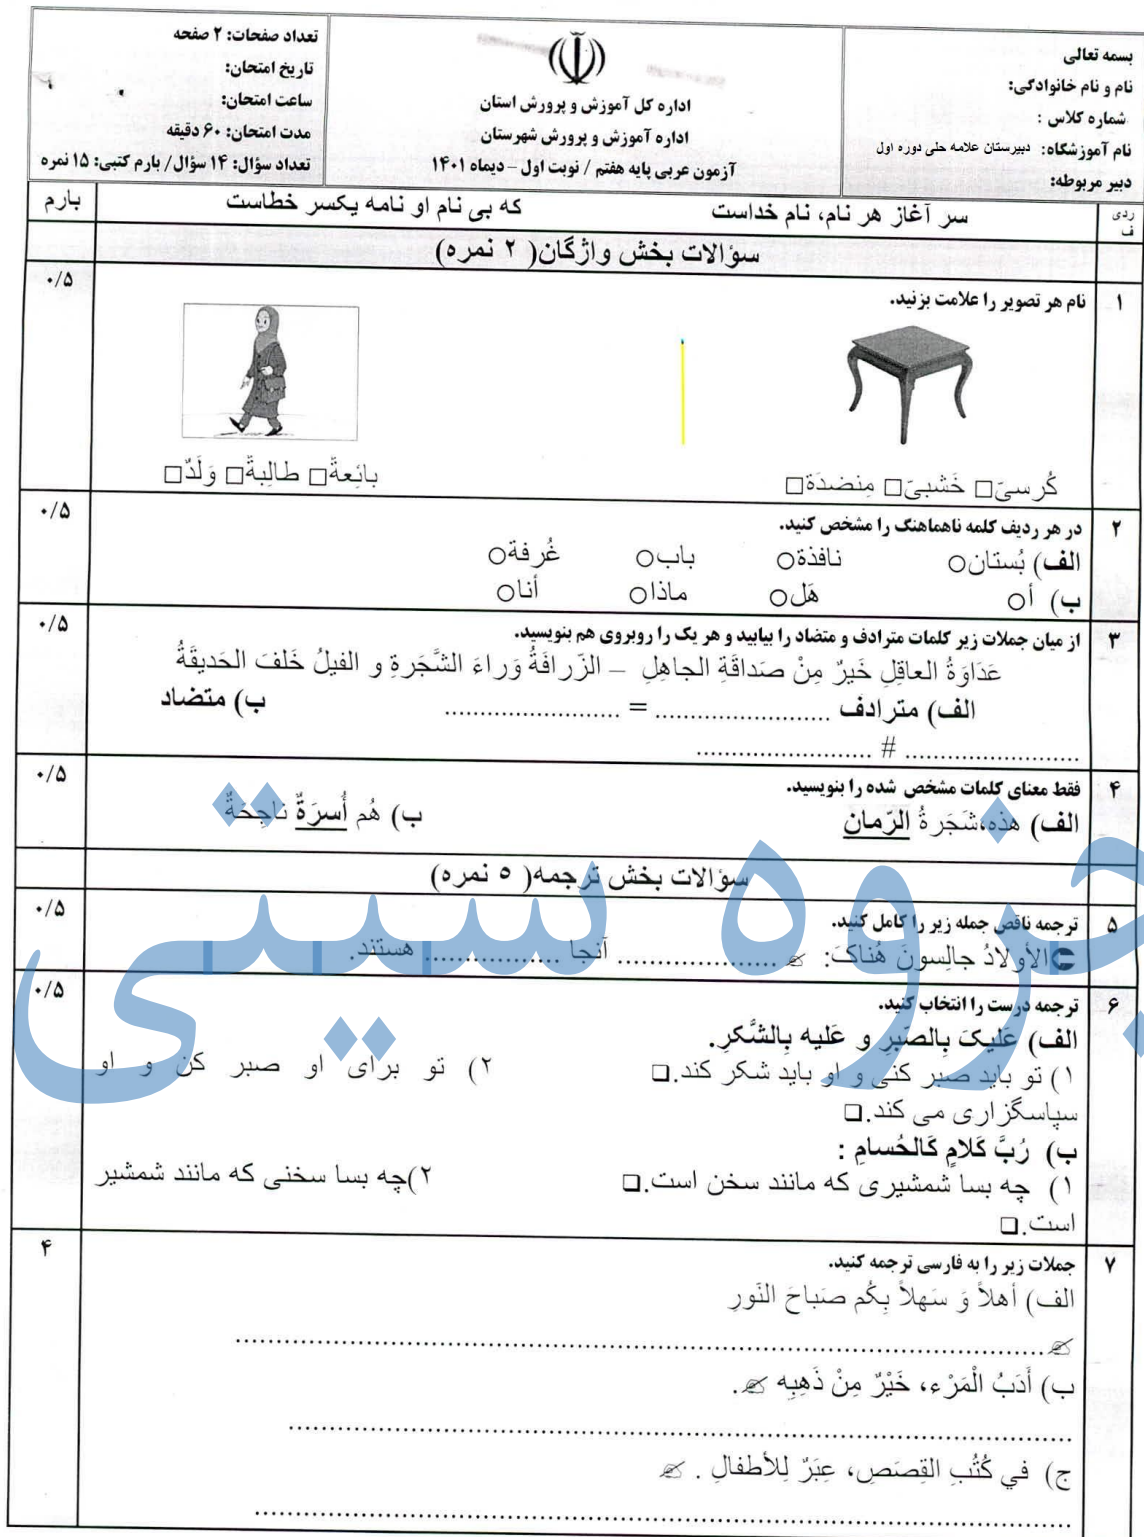 بسمه تعالی
نام و نام خانوادگی:
شماره کلاس :
نام آموزشگاه: دبیرستان علامه حلی دوره اول
دبیر مربوطه:
اداره کل آموزش و پرورش استان
اداره آموزش و پرورش شهرستان
آزمون عربی پایه هفتم / نوبت اول – دیماه ۱۴۰۱
تعداد صفحات: ۲ صفحه
تاریخ امتحان:
ساعت امتحان:
مدت امتحان: ۶۰ دقیقه
تعداد سؤال: ۱۴ سؤال/ بارم کتبی: ۱۵ نمره
ردیف سر آغاز هر نام، نام خداست که بی نام او نامه یکسر خطاست بارم
سؤالات بخش واژگان( ۲ نمره)
۱ نام هر تصویر را علامت بزنید. ۰/۵
كُرسيّ□ خَشبيّ□ مِنضدَة□ بائِعةٌ□ طالِبةٌ□ وَلَدٌ□
۲ در هر ردیف کلمه ناهماهنگ را مشخص کنید. ۰/۵
الف) بُستان○ نافذة○ باب○ غُرفة○
ب) أ○ هَل○ ماذا○ أنا○
۳ از میان جملات زیر کلمات مترادف و متضاد را بیابید و هر یک را روبروی هم بنویسید. ۰/۵
عَدَاوَةُ العاقِلِ خَيرٌ مِنْ صَداقَةِ الجاهِلِ – الزّرافَةُ وَراءَ الشَّجَرةِ و الفيلُ خَلفَ الحَديقَةُ
الف) مترادف ......................... = ......................... ب) متضاد
......................... # .........................
۴ فقط معنای کلمات مشخص شده را بنویسید. ۰/۵
الف) هذه،شَجَرةُ الرّمان ب) هُم أُسرَةٌ ناجِحَةٌ
سؤالات بخش ترجمه( ۵ نمره)
۵ ترجمه ناقص جمله زیر را کامل کنید. ۰/۵
الأولادُ جالِسونَ هُناکَ: ...................... آنجا ................. هستند.
۶ ترجمه درست را انتخاب کنید. ۰/۵
الف) عَلیکَ بِالصَبرِ و عَلیه بِالشَّکرِ.
۱) تو باید صبر کنی و او باید شکر کند.❑ ۲) تو برای او صبر کن و او
سپاسگزاری می کند.❑
ب) رُبَّ کَلامٍ کَالحُسامِ :
۱) چه بسا شمشیری که مانند سخن است.❑ ۲)چه بسا سخنی که مانند شمشیر
است.❑
۷ جملات زیر را به فارسی ترجمه کنید. ۴
الف) أهلاً وَ سَهلاً بِكُم صَباحَ النَورِ
....................................................................................
ب) أَدَبُ الْمَرْء، خَيْرٌ مِنْ ذَهَبِه .
....................................................................................
ج) في كُتُبِ القِصَصِ، عِبَرٌ لِلأطفالِ .
....................................................................................
جزوه سیتی